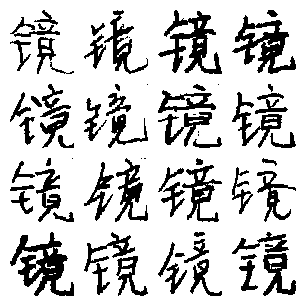 镜镜镜镜
镜镜镜镜
镜镜镜镜
镜镜镜镜